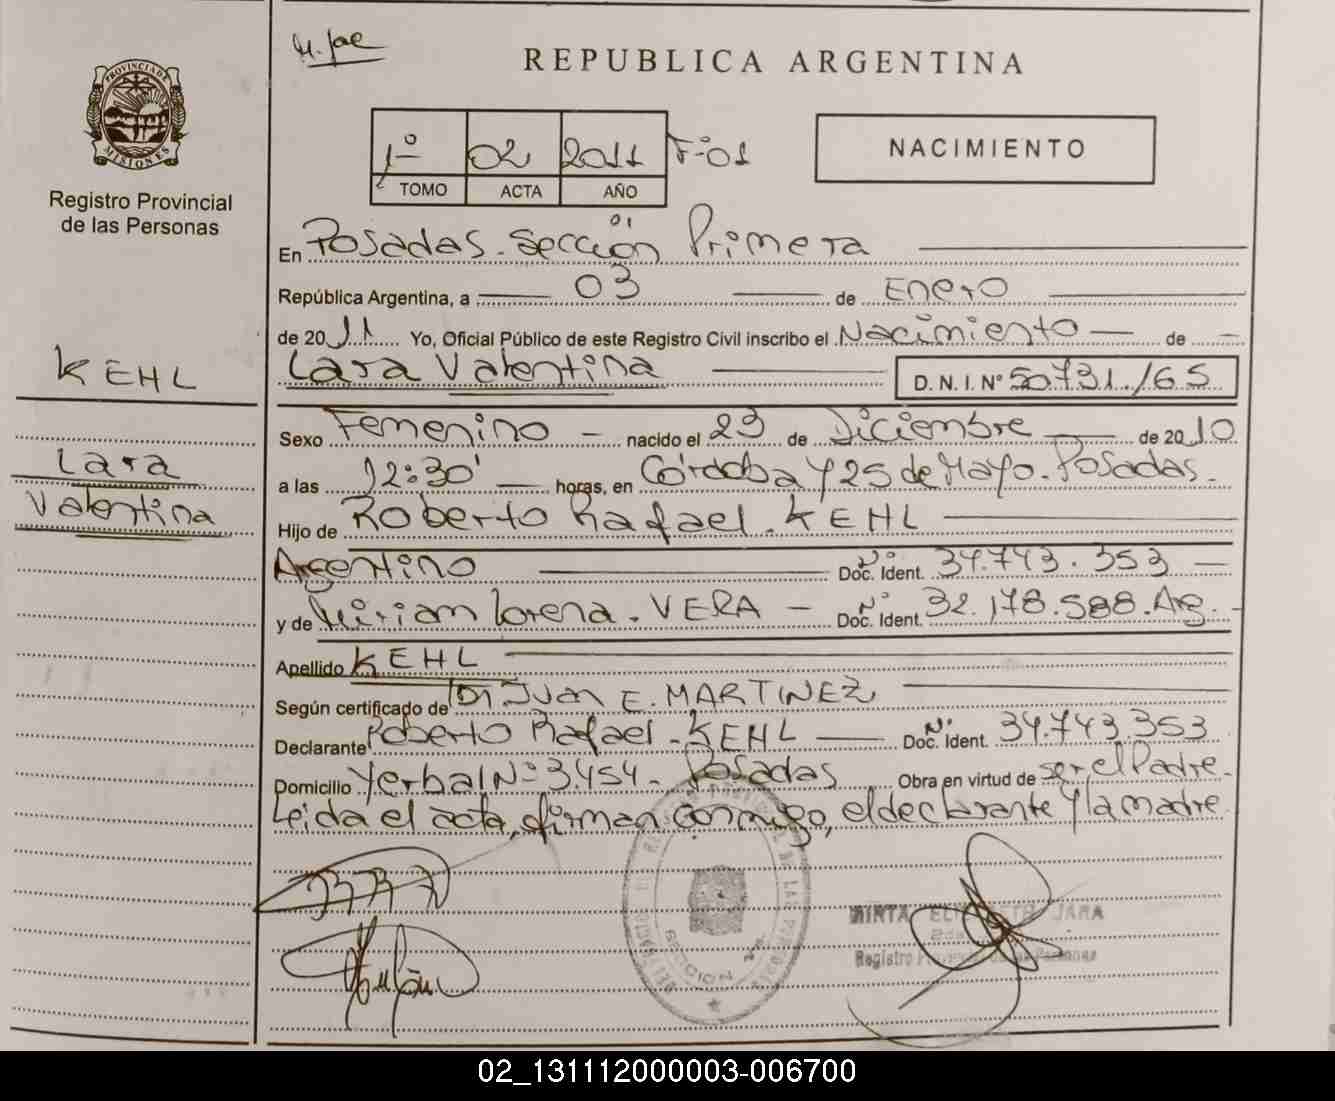 REPUBLICA ARGENTINA
PROVINCIA DE
MISIONES
Registro Provincial
de las Personas
1º 02 2011 Fº01
TOMO ACTA AÑO
NACIMIENTO
En Posadas. Sección Primera
República Argentina, a 03 de Enero
de 2011 Yo, Oficial Público de este Registro Civil inscribo el Nacimiento de
Lara Valentina D. N. I. Nº 50.731./65
KEHL
Lara
Valentina
Sexo Femenino nacido el 23 de Diciembre de 2010
a las 12:30' horas, en Córdoba y 25 de Mayo. Posadas.
Hijo de Roberto Rafael. KEHL
Argentino Nº Doc. Ident. 34.743.353
y de Miriam Lorena. VERA Nº Doc. Ident. 32.178.588. Arg.
Apellido KEHL
Según certificado de Dr Juan E. MARTINEZ
Declarante Roberto Rafael. KEHL Nº Doc. Ident. 34.743.353
Domicilio Yerbal Nº 3.454. Posadas Obra en virtud de ser el Padre.
Leida el acta, firman conmigo, el declarante y la madre.
SECCION
MIRTA ELIZABETH JARA
Registro Provincial de las Personas
02_131112000003-006700